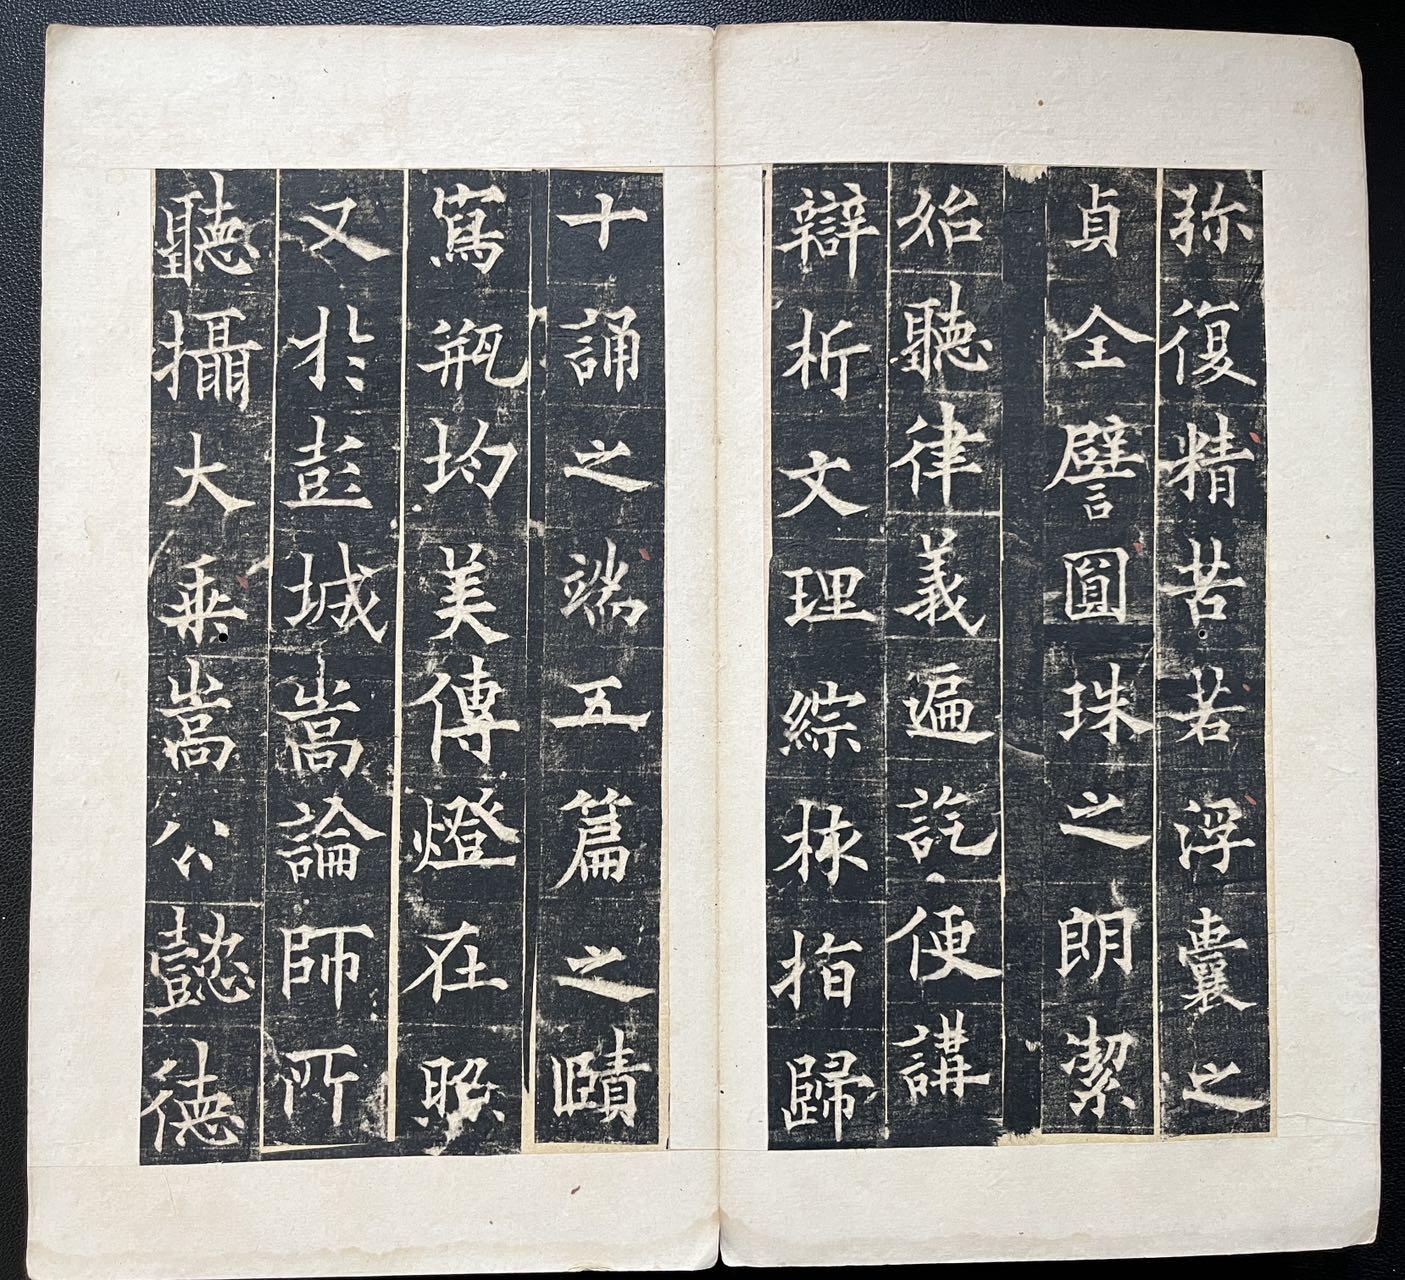 弥復精苦若浮囊之
貞全譬圓珠之朗潔
始聽律義遍訖便講
辯析文理綜核指歸
十誦之端五篇之賾
寫瓶均美傳燈在照
又於彭城嵩論師所
聽攝大乘嵩公懿德